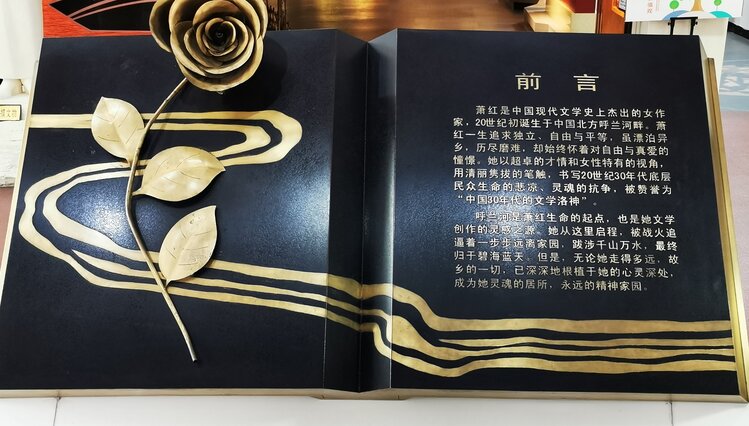 前言
萧红是中国现代文学史上杰出的女作
家，20世纪初诞生于中国北方呼兰河畔。萧
红一生追求独立、自由与平等，虽漂泊异
乡，历尽磨难，却始终怀着对自由与真爱的
憧憬。她以超卓的才情和女性特有的视角，
用清丽隽拔的笔触，书写20世纪30年代底层
民众生命的悲凉、灵魂的抗争，被赞誉为
“中国30年代的文学洛神”。
呼兰河是萧红生命的起点，也是她文学
创作的灵感之源。她从这里启程，被战火追
逼着一步步远离家园，跋涉千山万水，最终
归于碧海蓝天。但是，无论她走得多远，故
乡的一切，已深深地根植于她的心灵深处，
成为她灵魂的居所，永远的精神家园。